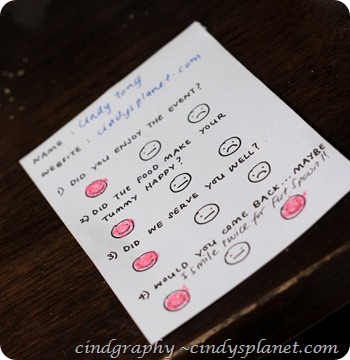 NAME : Cindy Tong
WEBSITE : cindysplanet.com
1) DID YOU ENJOY THE EVENT?
2) DID THE FOOD MAKE YOUR
TUMMY HAPPY?
3) DID WE SERVE YOU WELL?
4) WOULD YOU COME BACK...MAYBE
I smile twice for Fat Spoon!!
cindgraphy ~cindysplanet.com